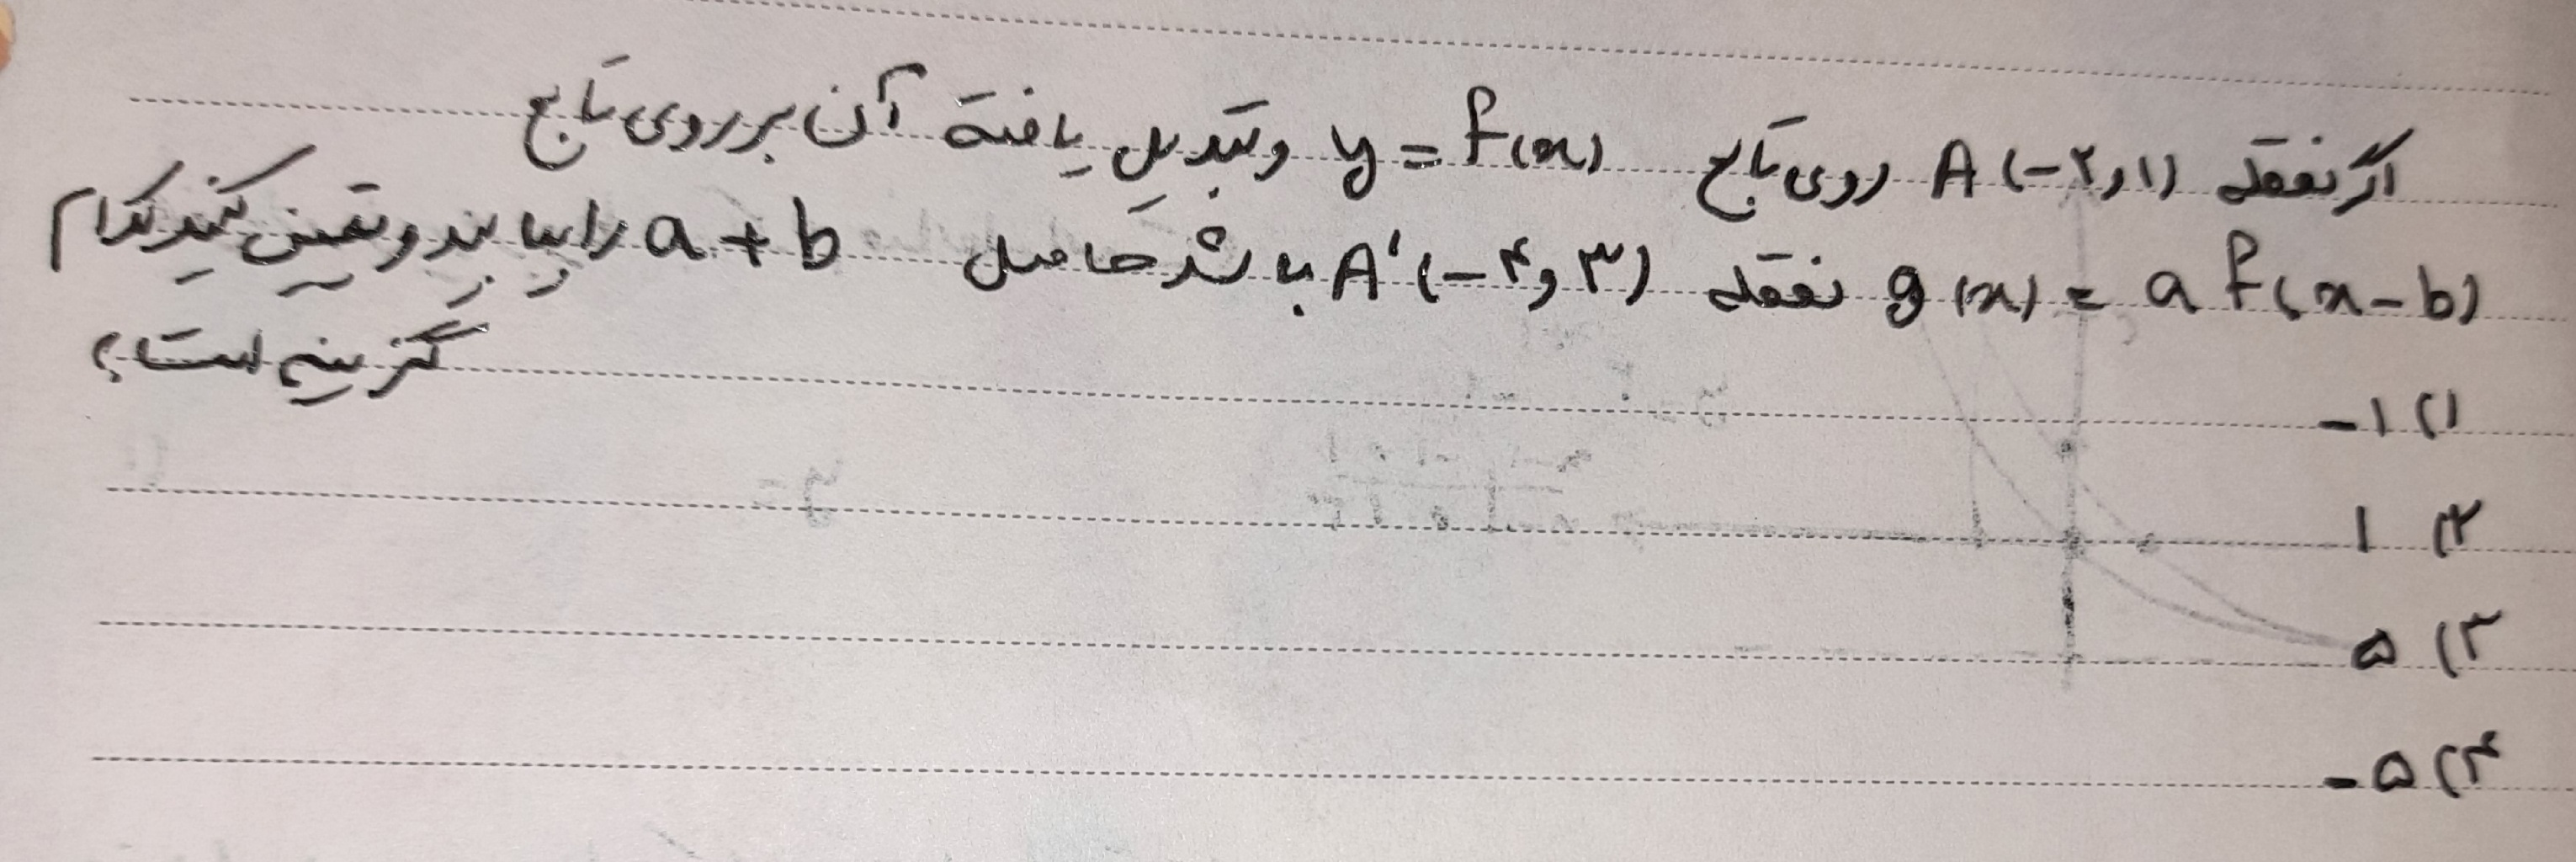 اگر نقطه A(-۲,۱) روی تابع y = f(x) و تبدیل یافته آن بر روی تابع
g(x) = a f(x-b) نقطه A'(-۴,۳) باشد حاصل a+b را بیابید و تعیین کنید کدام
گزینه است؟
۱) -۱
۲) ۱
۳) ۵
۴) -۵